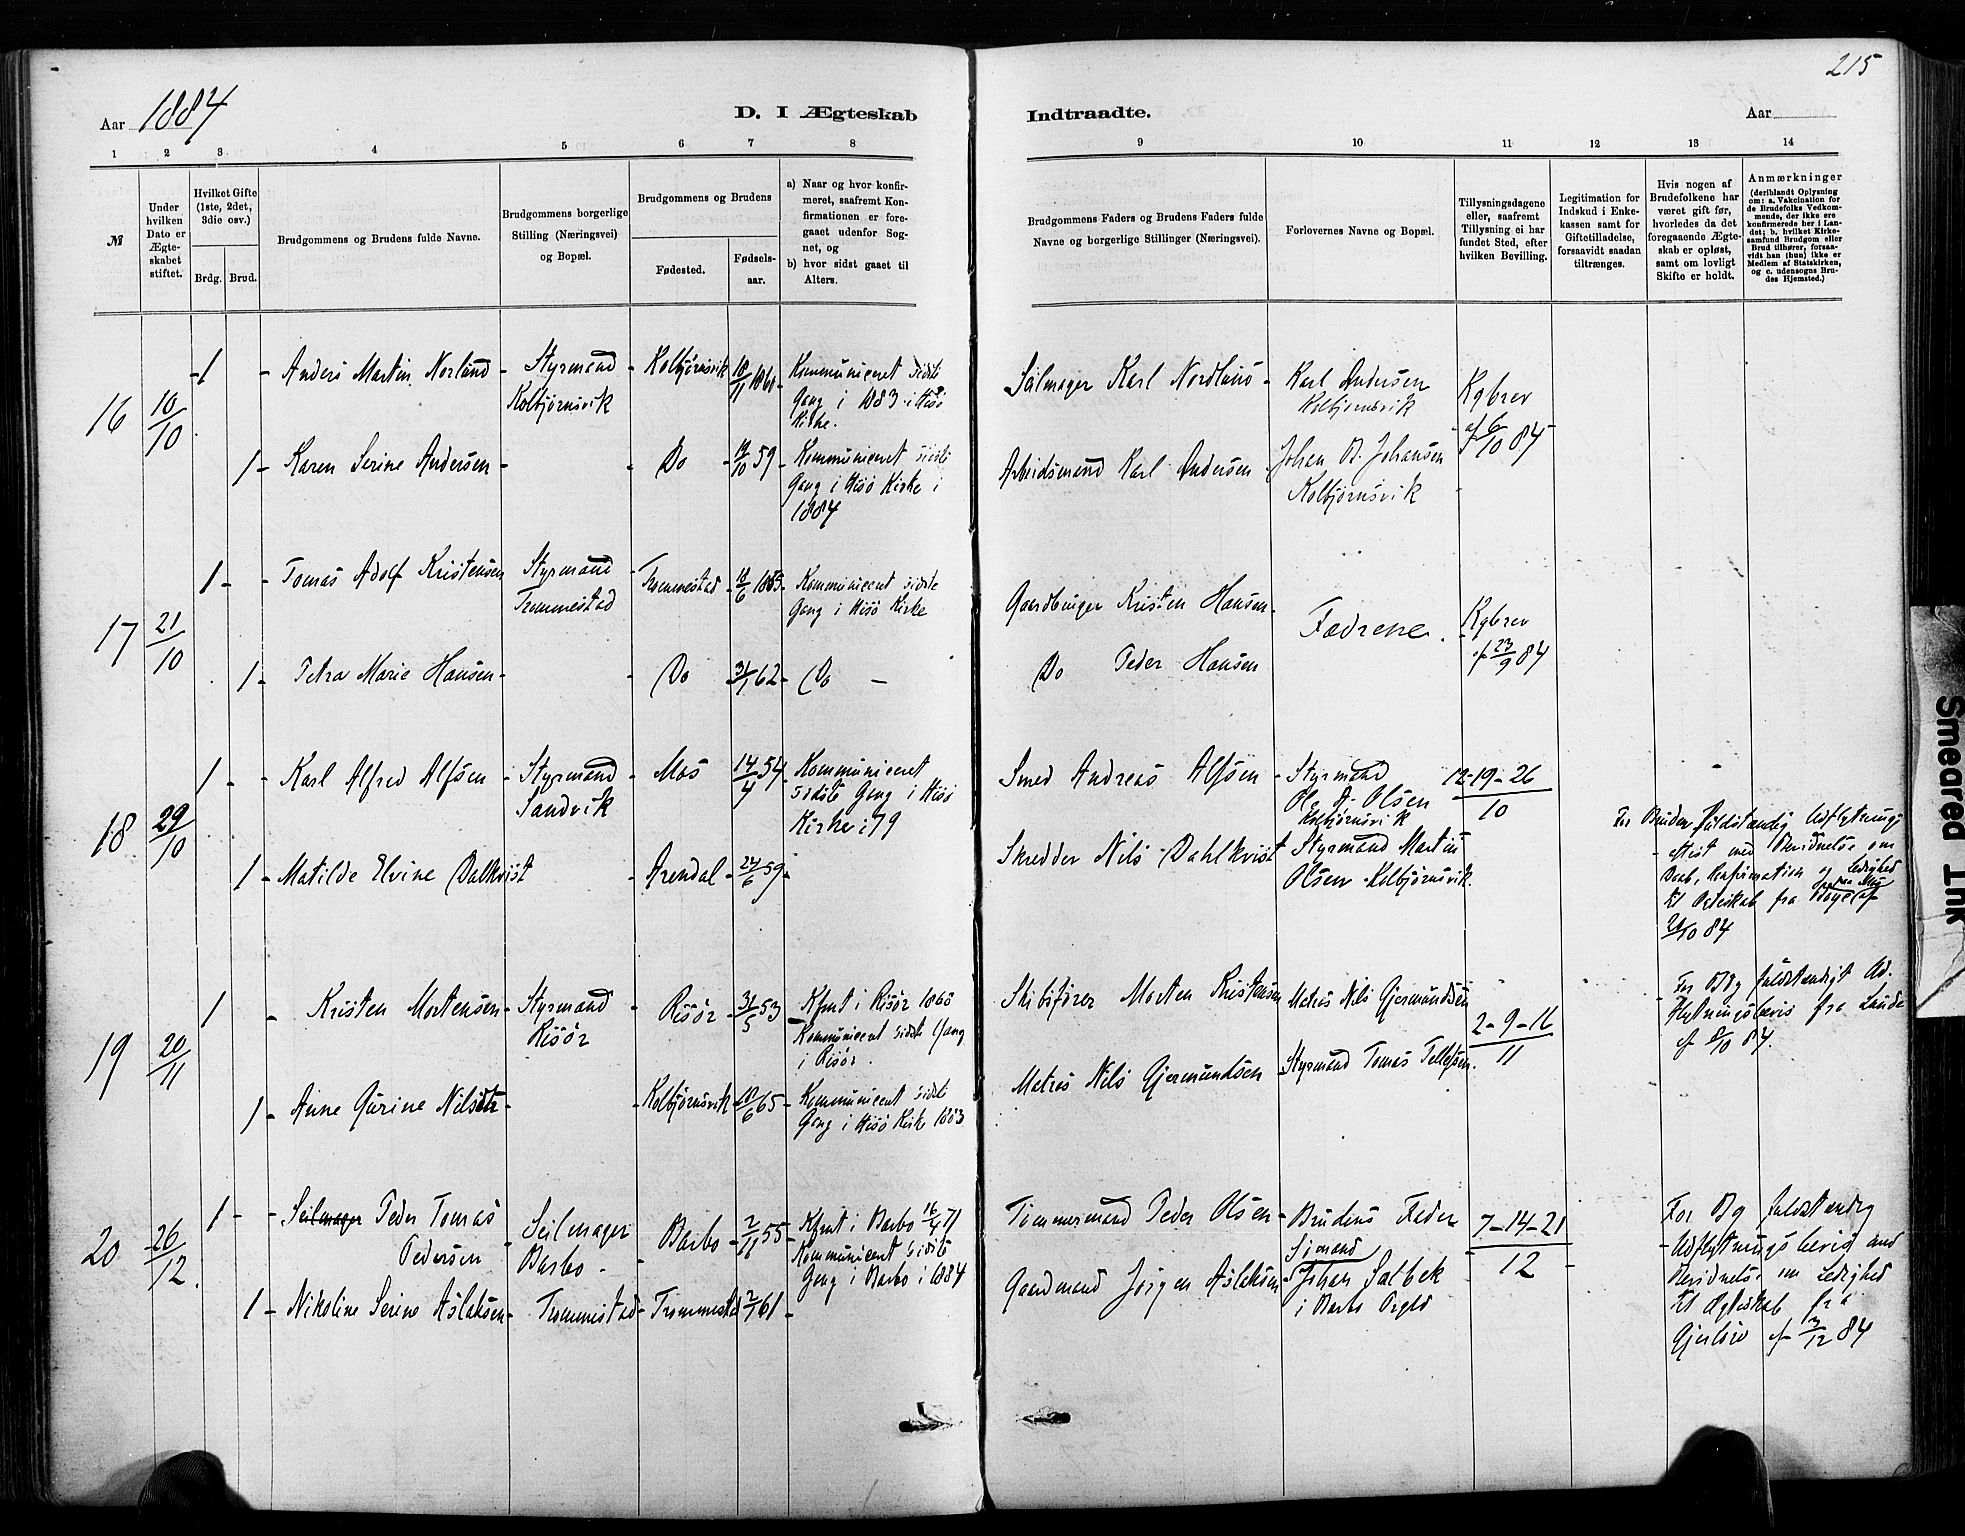 215
Aar 1884
D. I Ægteskab Indtraadte.
Aar
1 2 3 4 5 6 7 8 9 10 11 12 13 14
№
Under hvilken Dato er Ægteskabet stiftet.
Hvilket Gifte (1ste, 2det, 3die osv.)
Brdg. Brud.
Brudgommens og Brudens fulde Navne.
Brudgommens borgerlige Stilling (Næringsvei) og Bopæl.
Brudgommens og Brudens
Fødested.
Fødsels-aar.
a) Naar og hvor konfirmeret, saafremt Konfirmationen er foregaaet udenfor Sognet, og
b) hvor sidst gaaet til Alters.
Brudgommens Faders og Brudens Faders fulde Navne og borgerlige Stillinger (Næringsvei).
Forlovernes Navne og Bopæl.
Tillysningsdagene eller, saafremt Tillysning ei har fundet Sted, efter hvilken Bevilling.
Legitimation for Indskud i Enkekassen samt for Giftetilladelse, forsaavidt saadan tiltrænges.
Hvis nogen af Brudefolkene har været gift før, hvorledes da det foregaaende Ægteskab er opløst, samt om lovligt Skifte er holdt.
Anmærkninger (deriblandt Oplysning om: a. Vakcination for de Brudefolks Vedkommende, der ikke ere konfirmerede her i Landet; b. hvilket Kirkesamfund Brudgom eller Brud tilhører, forsaavidt han (hun) ikke er Medlem af Statskirken, og c. udensogns Brudes Hjemsted.)
16 10/10
1 - Anders Martin Norlund - Styrmand Kolbjørnsvik - Kolbjørnsvik
Kommuniceret sidste Gang i 1883 i Hisø Kirke.
Seilmager Karl Nordlund - Karl Andersen Kolbjørnsvik
Kgbrev af 6/10 84
1 - Karen Serine Andersen - Do 59
Kommuniceret sidste Gang i Hisø Kirke i 1884
Arbeidsmand Karl Andersen Johan B. Johansen Kolbjørnsvik
17 21/10
1 - Tomas Adolf Kristensen Styrmand Trommestad Trommestad
Kommuniceret sidste Gang i Hisø Kirke
Gaardbruger Kristen Hansen - Fædrene.
Kgbrev af 23/9 84
1 - Petra Marie Hansen - Do 31/1 62 - Do -
Do Peder Hansen
18 29/10
1 - Karl Alfred Alfsen - Styrmand Sandvik - Mos 14/4 54
Kommuniceret sidste Gang i Hisø Kirke i 79
Smed Andreas Alfsen - Styrmand Ole A. Olsen Kolbjørnsvik
12-19-26/10
1 - Matilde Elvine Dalkvist - Arendal - 24/6 59
Skredder Nils Dahlkvist Styrmand Martin Olsen - Kolbjørnsvik.
For Bruden fuldstændig Udflytnings
Attest med Beridnelse om
Daab, Konfirmation og Ledighed
til Ægteskab fra
10 84
19 20/11
1 - Kristen Mortensen - Styrmand Risør - Risør 31/5 53
Kfmt i Risør 1868
Kommuniceret sidste Gang i Risør.
Skibsfører Morten Kristensen Matros Nils Gjermundsen
2-9-16/11
For Bg fuldstændigt Ud-
flytningsbevis fra
af 8/10 84.
1 - Anne Gurine Nilsdtr - Kolbjørnsvik 10/6 65
Kommuniceret sidste Gang i Hisø Kirke 1883
Matros Nils Gjermundsen - Styrmand Tomas Tellefsen.
20 26/12
1 - Seilmager Peder Tomas Pedersen - Seilmager Barbo - Barbo - 2/11 55
Kfmt i Barbo 16/4 71
Kommuniceret sidste Gang i Barbo i 1884
Tømmermand Peder Olsen - Brudens Fader
7-14-21/12
For Bg fuldstændig
Udflytnings bevis med
Beridnelse om Ledighed
til Ægteskab fra
af 3/12 84
1 - Nikoline Serine Aslaksen - Trommestad - Trommestad 2/7 61
Gaardmand Jørgen Aslaksen Sømand Johan Salbek i Barbo
Smeared Ink